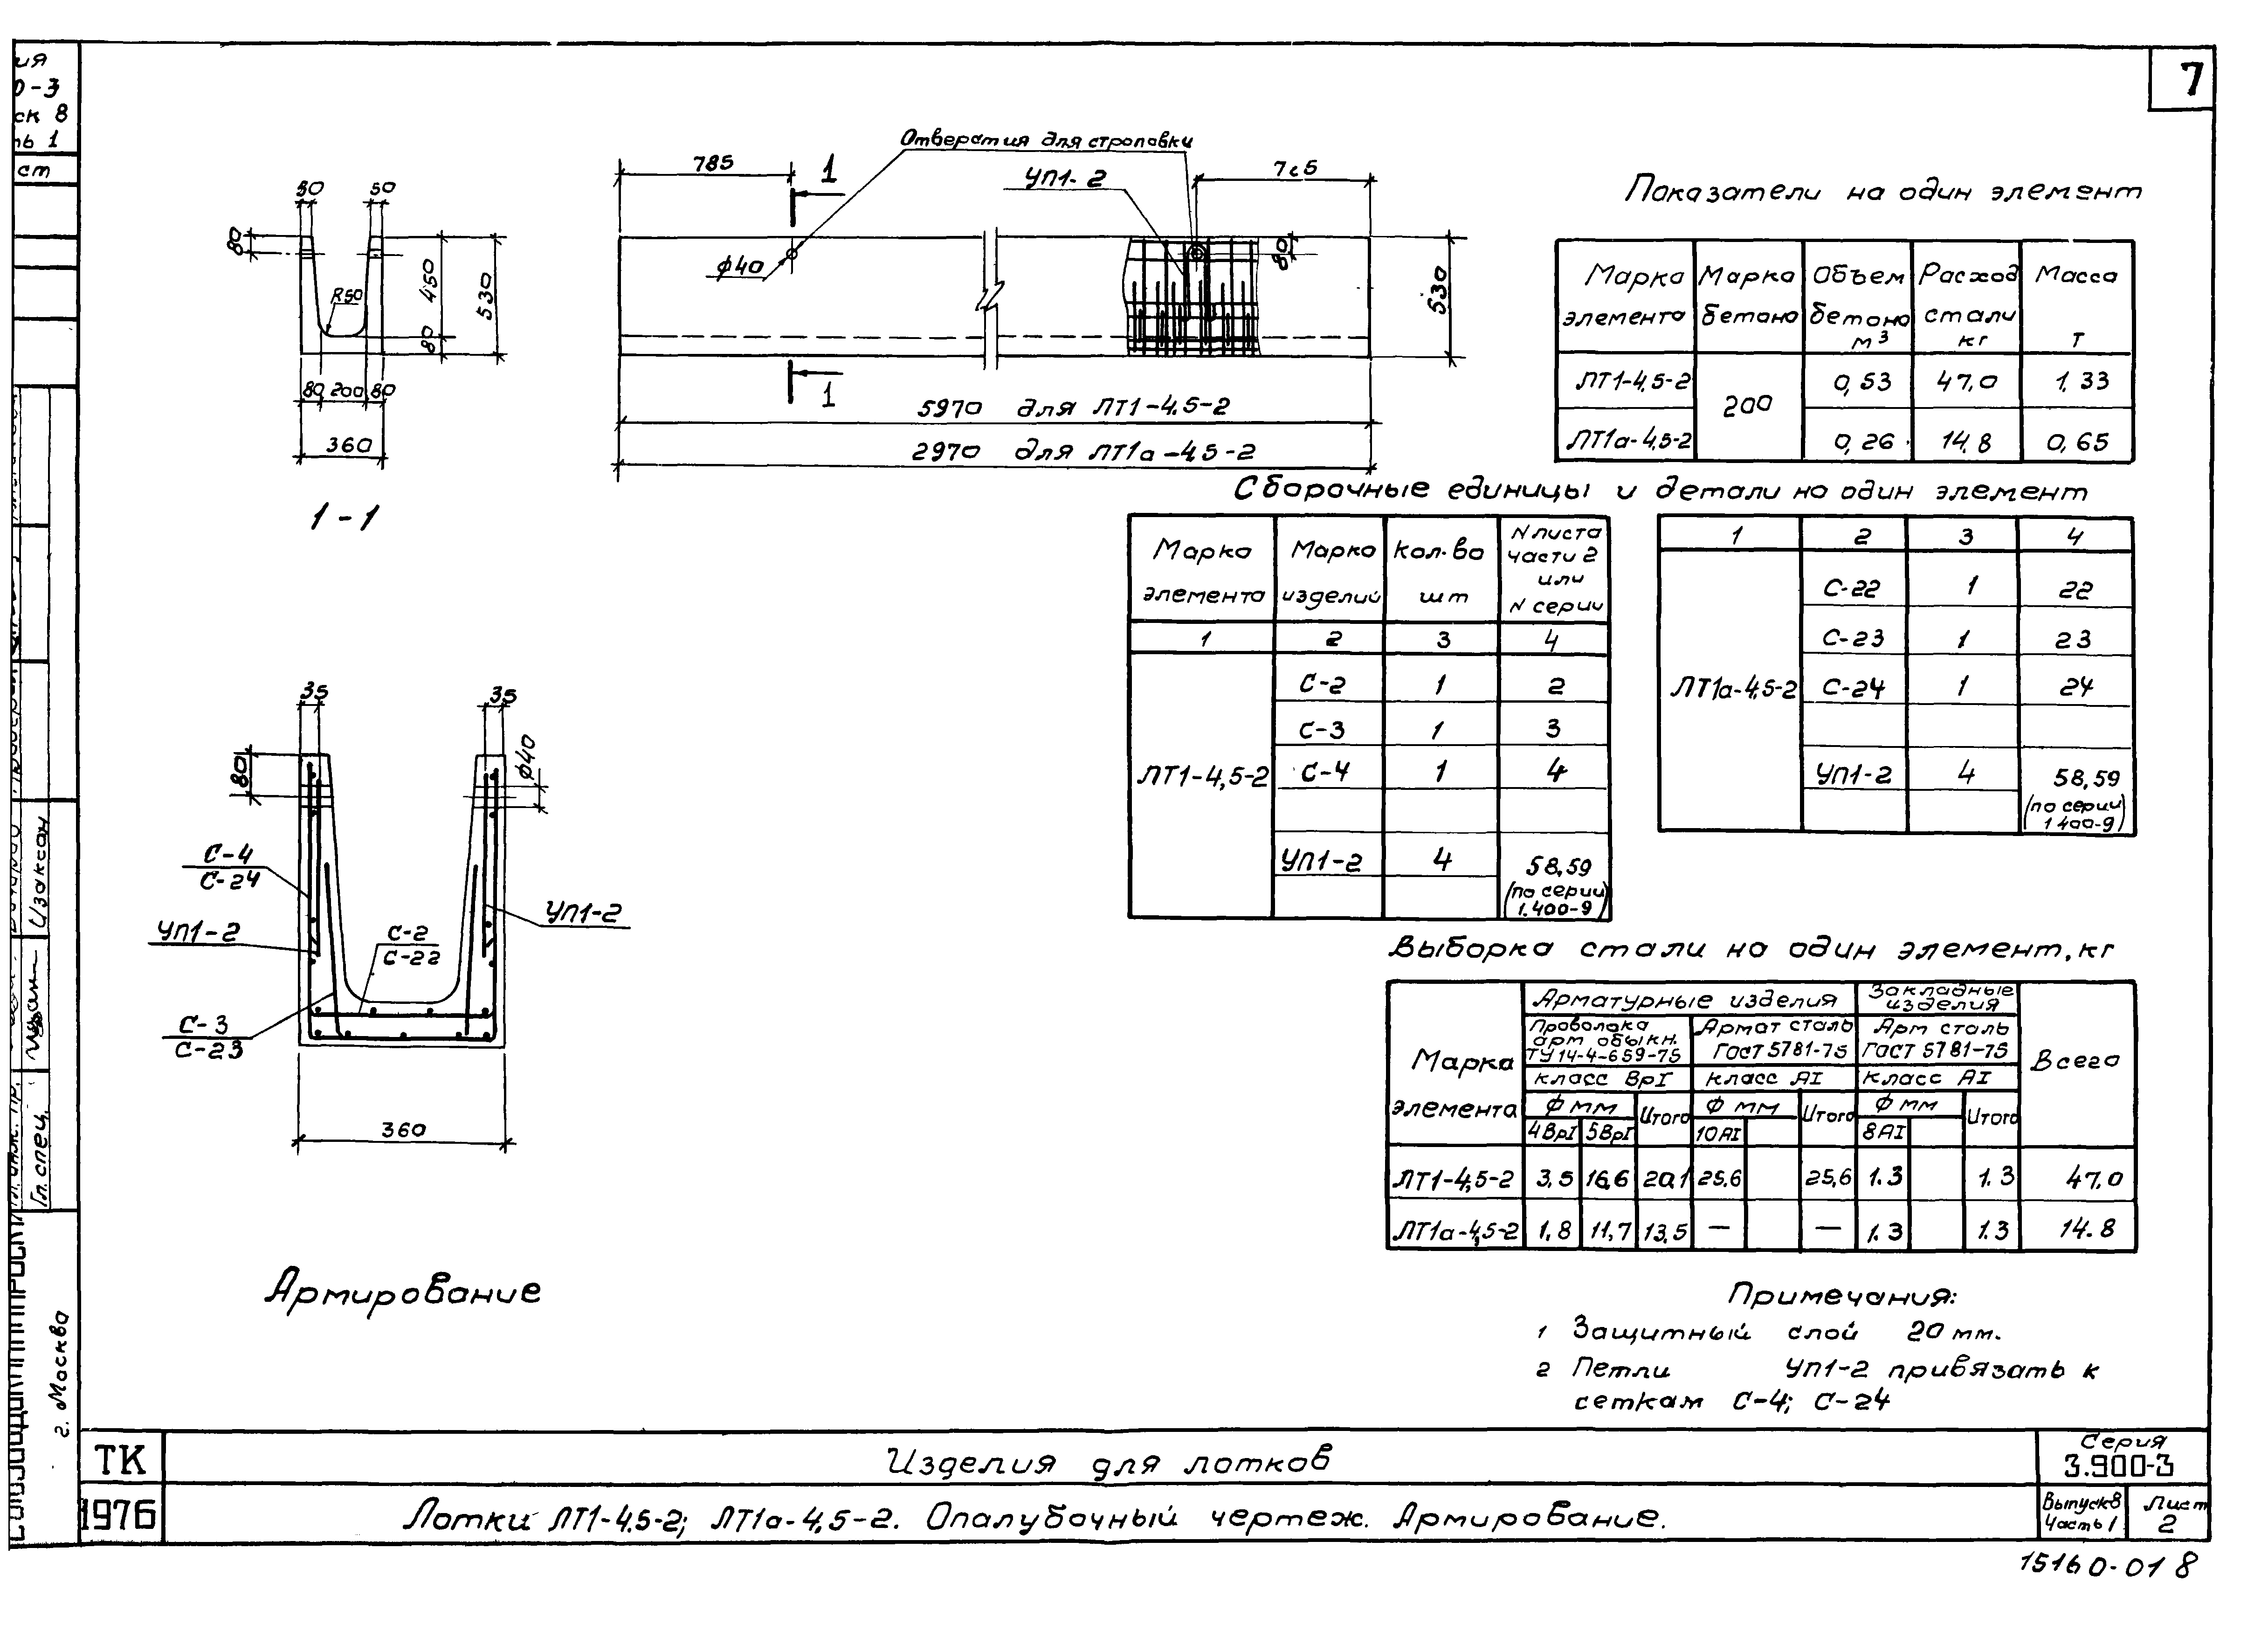 ия
0-3
ск 8
ть 1
ст
7
Отверстия для строповки
785
1
УП1-2
765
50
50
80
R50
450
80
530
80 200 80
360
1-1
ф40
80
530
1
5970 для ЛТ1-4,5-2
2970 для ЛТ1а-4,5-2
Показатели на один элемент
Марка элемента
Марка бетона
Объем бетона м³
Расход стали кг
Масса т
ЛТ1-4,5-2 200 0,53 47,0 1,33
ЛТ1а-4,5-2 0,26 14,8 0,65
Сборочные единицы и детали на один элемент
Марка элемента
Марка изделий
Кол-во шт
N листа части 2 или N серии
1 2 3 4
ЛТ1-4,5-2
С-2 1 2
С-3 1 3
С-4 1 4
УП1-2 4 58,59
(по серии 1.400-9)
1 2 3 4
ЛТ1а-4,5-2
С-22 1 22
С-23 1 23
С-24 1 24
УП1-2 4 58,59
(по серии 1.400-9)
35
35
80
ф40
С-4
С-24
УП1-2
С-2
С-22
УП1-2
С-3
С-23
360
Армирование
Выборка стали на один элемент, кг
Марка элемента
Арматурные изделия
Закладные изделия
Всего
Проволока арм обыкн. ТУ 14-4-659-75
Армат сталь ГОСТ 5781-75
Арм сталь ГОСТ 5781-75
класс ВрI
класс АI
класс АI
ф мм Итого ф мм Итого ф мм Итого
4ВрI 5ВрI 10АI 8АI
ЛТ1-4,5-2 3,5 16,6 20,1 25,6 25,6 1.3 1.3 47,0
ЛТ1а-4,5-2 1,8 11,7 13,5 — — 1.3 1.3 14.8
Примечания:
1 Защитный слой 20 мм.
2 Петли УП1-2 привязать к
сеткам С-4; С-24
Изаксон
Гл. спец.
г. Москва
ТК
1976
Изделия для лотков
Лотки ЛТ1-4,5-2; ЛТ1а-4,5-2. Опалубочный чертеж. Армирование.
Серия
3.900-3
Выпуск 8
Часть 1
Лист
2
15160-01 8